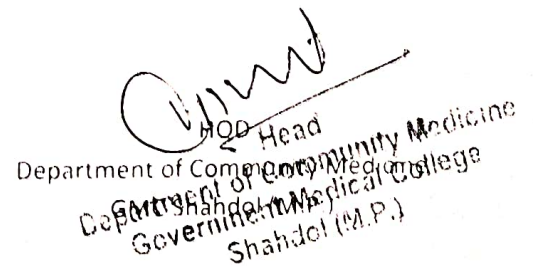 HOD
Department of Community Medicine
GMC Shahdol (M.P.)
Head
Department of Community Medicine
Government Medical College
Shahdol (M.P.)